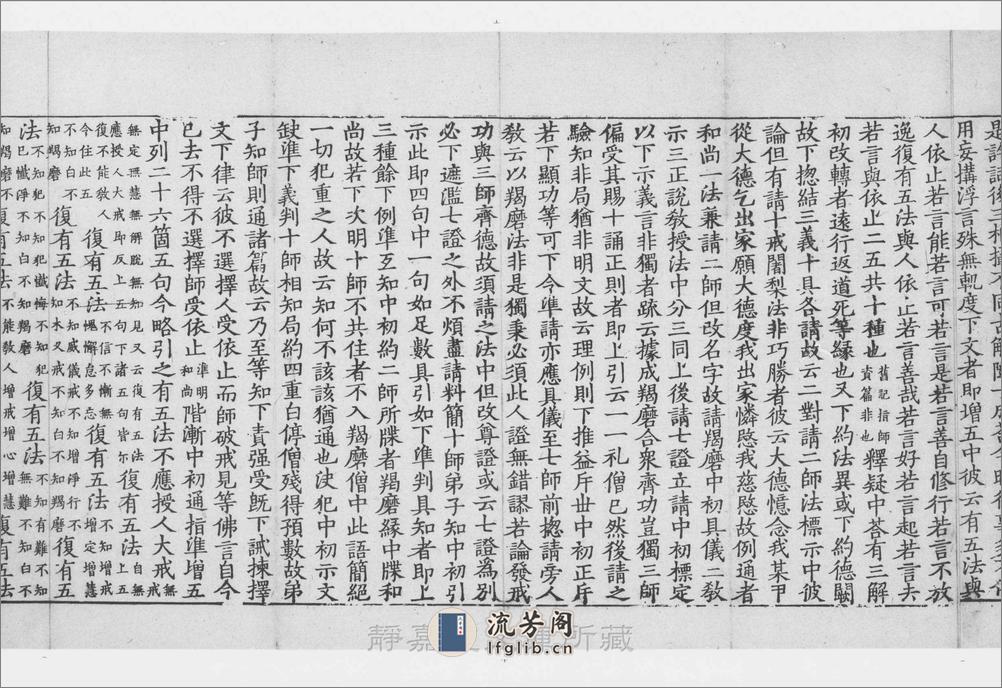 用妄搆浮言殊無軌度下文者即增五中彼云有五法與
人依止若言能若言可若言是若言善自修行若言不放
逸復有五法與人依止若言善哉若言好若言起若言去
若言與依止二五共十種也舊記指師資篇非也釋疑中荅有三解
初改轉者遠行返道死等緣也又下約法異或下約德闕
故下揔結三義十具各請故云二對請二師法標示中彼
論但有請十戒闍梨法非巧勝者彼云大德憶念我某甲
從大德乞出家願大德度我出家憐愍我慈愍故例通者
和尚一法兼請二師但改名字故請羯磨中初具儀二教
示三正說教授法中分三同上後請七證立請中初標定
以下示義言非獨者䟽云據成羯磨合衆齊功豈獨三師
偏受其賜十誦正則者即上引云一一礼僧已然後請之
驗知非局猶非明文故云理例則下推益斤世中初正斤
若下顯功等可下令準請亦應具儀至七師前揔請旁人
教云以羯磨法非是獨秉必須此人證無錯謬若論發戒
功與三師齊德故須請之法中但改尊證或云七證為別
必下遮濫七證之外不煩盡請料簡十師弟子知中初引
示此即四句中一句如足數具引如下準判具知者即上
三種餘下例準互知中初約二師所牒者羯磨緣中牒和
尚故若下次明十師不共住者不入羯磨僧中此語簡絕
一切犯重之人故云知何不該該猶通也使犯中初示文
缺準下義判十師相知局約四重白停僧殘得預數故弟
子知師則通諸篇故云乃至等知下責强受旣下誡揀擇
文下律云彼不選擇人受依止而師破戒見等佛言自今
已去不得不選擇師受依止準明和尚階漸中初通指準增五
中列二十六箇五句今略引之有五法不應授人大戒無戒
無定無慧無解脫無知見又云復有五法自無應授人大戒即反上五句下諸五句皆尔復有五法上五復不能教人今住此五復有五法不信不慚無愧懈怠多忘復有五法增定增慧不知白不知羯磨復有五法不知威儀戒不知增淨行不知木叉戒不知白不知羯磨復有五
法不知犯不知犯懺悔不知犯已懺淨不知白不知羯磨復有五法不知有難不知無難不知白不知羯磨復有五法不能教人增戒增心增慧復有五法